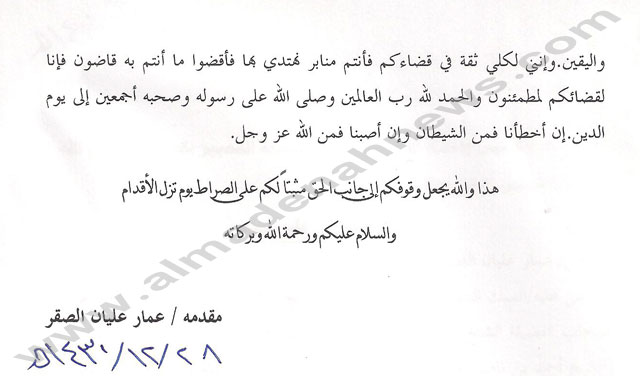 واليقين.وإنني لكلي ثقة في قضاءكم فأنتم منابر نهتدي بها فأقضوا ما أنتم به قاضون فإنا
لقضائكم لمطمئنون والحمد لله رب العالمين وصلى الله على رسوله وصحبه أجمعين إلى يوم
الدين.إن أخطأنا فمن الشيطان وإن أصبنا فمن الله عز وجل.
هذا والله يجعل وقوفكم إلى جانب الحق مثبتاً لكم على الصراط يوم تزل الأقدام
والسلام عليكم ورحمة الله وبركاته
مقدمه / عمار عليان الصقر
١٤٣٠/١٢/٢٨هـ
www.almadenahnews.com